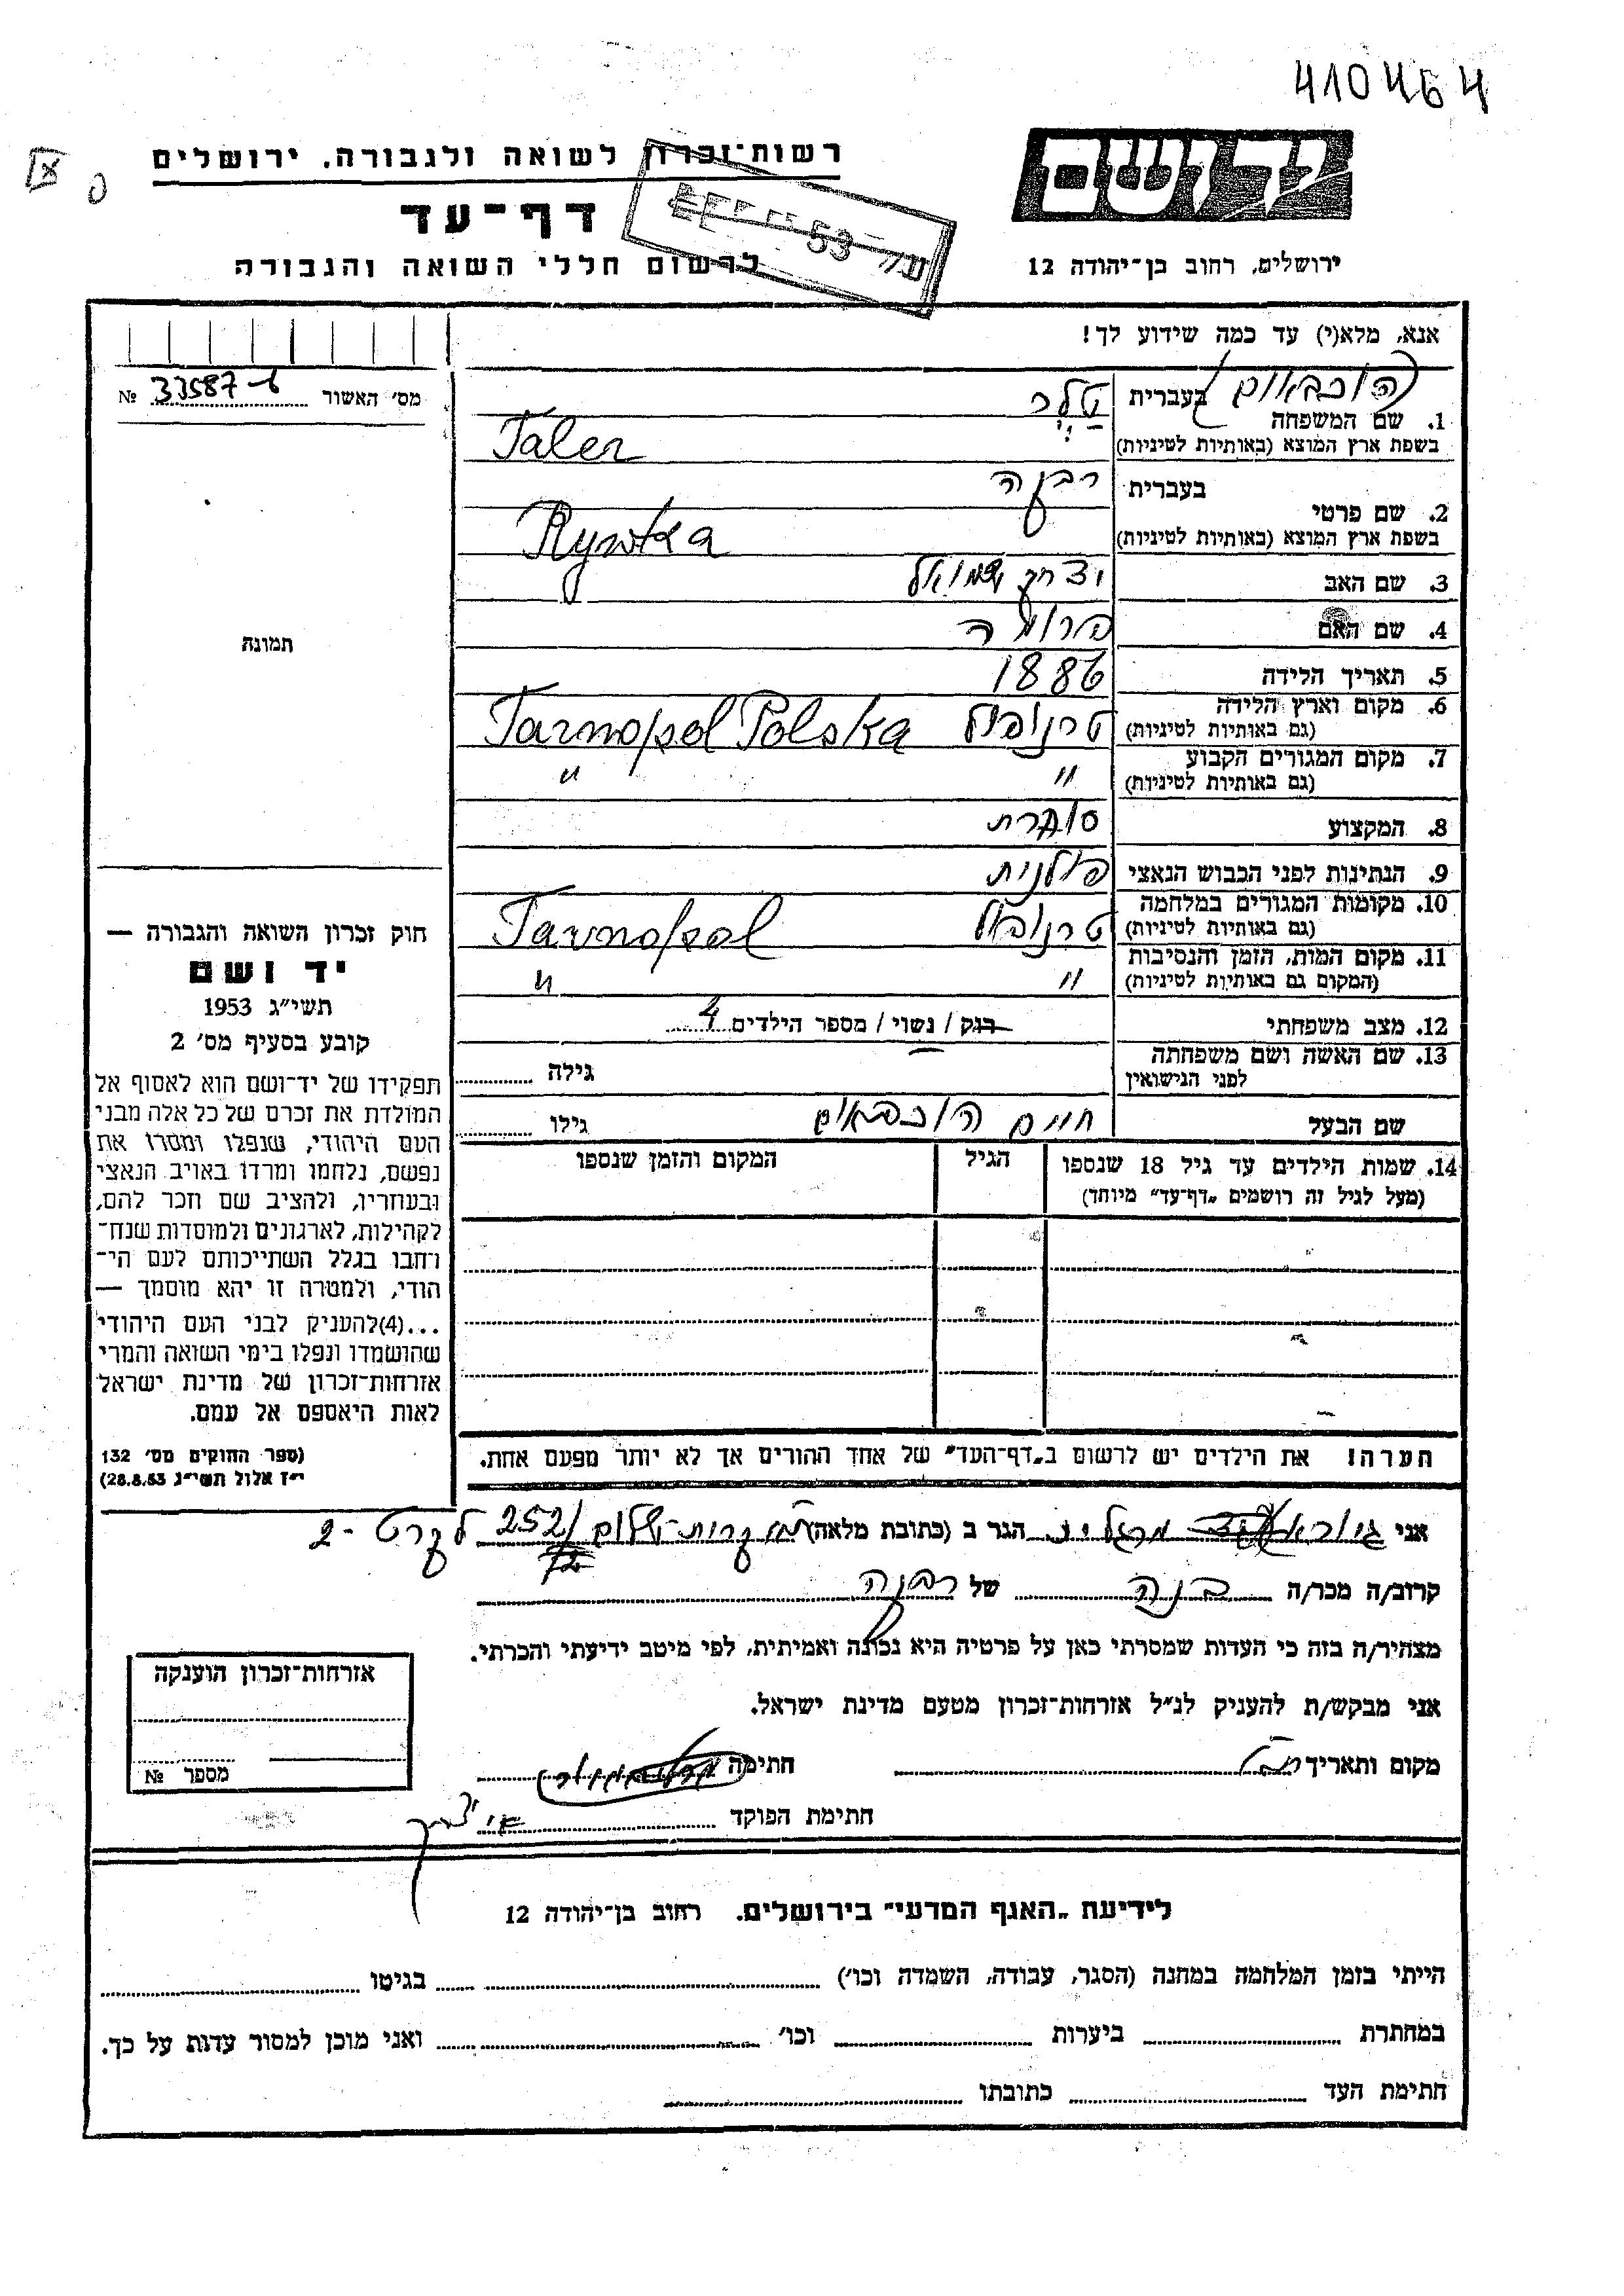 410464
רשות־זכרון לשואה ולגבורה, ירושלים
דף־עד
לרשום חללי השואה והגבורה
ירושלים, רחוב בן־יהודה 12
אנא, מלא(י) עד כמה שידוע לך!
מס׳ האשור 33587 №
(הוכבאום)
1. שם המשפחה בעברית טלר
בשפת ארץ המוצא (באותיות לטיניות) Taler
2. שם פרטי בעברית רבקה
בשפת ארץ המוצא (באותיות לטיניות) Rywka
3. שם האב יצחק שמואל
4. שם האם פרומה
5. תאריך הלידה 1886
6. מקום וארץ הלידה טרנופול Tarnopol Polska
(גם באותיות לטיניות)
7. מקום המגורים הקבוע " "
(גם באותיות לטיניות)
8. המקצוע סוחרת
9. הנתינות לפני הכבוש הנאצי פולנית
10. מקומות המגורים במלחמה טרנופול Tarnopol
(גם באותיות לטיניות)
11. מקום המות, הזמן והנסיבות " "
(המקום גם באותיות לטיניות)
12. מצב משפחתי רוק / נשוי / מספר הילדים 4
13. שם האשה ושם משפחתה גילה
לפני הנישואין
שם הבעל חיים הוכבאום גילו
14. שמות הילדים עד גיל 18 שנספו הגיל המקום והזמן שנספו
(מעל לגיל זה רושמים „דף־עד״ מיוחד)
הערה! את הילדים יש לרשום ב„דף־העד״ של אחד ההורים אך לא יותר מפעם אחת.
תמונה
חוק זכרון השואה והגבורה —
יד ושם
תשי״ג 1953
קובע בסעיף מס׳ 2
תפקידו של יד־ושם הוא לאסוף אל
המולדת את זכרם של כל אלה מבני
העם היהודי, שנפלו ומסרו את
נפשם, נלחמו ומרדו באויב הנאצי
ובעוזריו, ולהציב שם וזכר להם,
לקהילות, לארגונים ולמוסדות שנח־
רבו בגלל השתייכותם לעם הי־
הודי, ולמטרה זו יהא מוסמך —
...(4)להעניק לבני העם היהודי
שהושמדו ונפלו בימי השואה והמרי
אזרחות־זכרון של מדינת ישראל
לאות היאספם אל עמם.
(ספר החוקים מס׳ 132
י״ז אלול תשי״ג 28.8.53)
אני הגר ב (כתובת מלאה) 252
קרוב/ה מכר/ה בנה של רבקה
מצהיר/ה בזה כי העדות שמסרתי כאן על פרטיה היא נכונה ואמיתית, לפי מיטב ידיעתי והכרתי.
אני מבקש/ת להעניק לנ״ל אזרחות־זכרון מטעם מדינת ישראל.
מקום ותאריך חתימה
חתימת הפוקד
אזרחות־זכרון הוענקה
מספר №
לידיעת „האגף המדעי״ בירושלים, רחוב בן־יהודה 12
הייתי בזמן המלחמה במחנה (הסגר, עבודה, השמדה וכו׳) בגיטו
במחתרת ביערות וכו׳ ואני מוכן למסור עדות על כך.
חתימת העד כתובתו